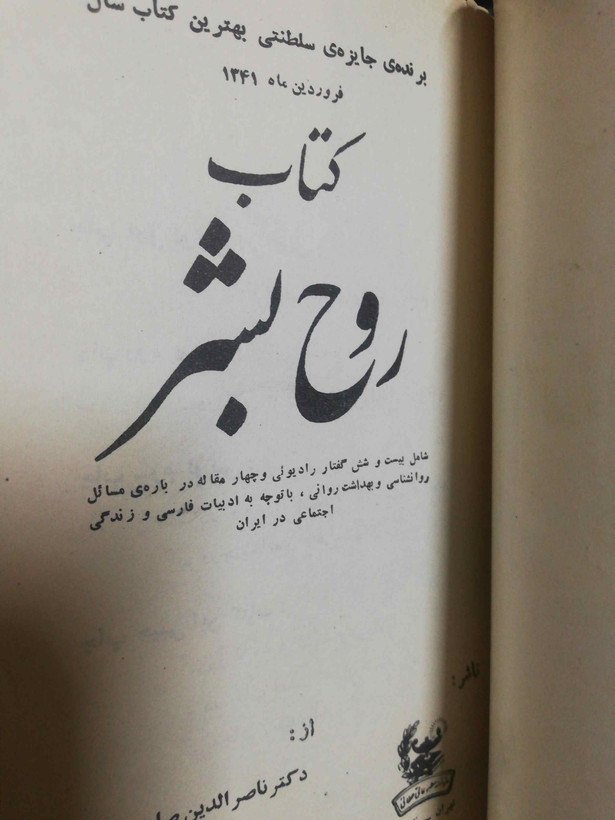 برنده‌ی جایزه‌ی سلطنتی بهترین کتاب سال
فروردین ماه ۱۳۴۱
کتاب
روح بشر
شامل بیست و شش گفتار رادیوئی و چهار مقاله در باره‌ی مسائل
روانشناسی و بهداشت روانی ، با توجه به ادبیات فارسی و زندگی
اجتماعی در ایران
ناشر:
از:
دکتر ناصرالدین